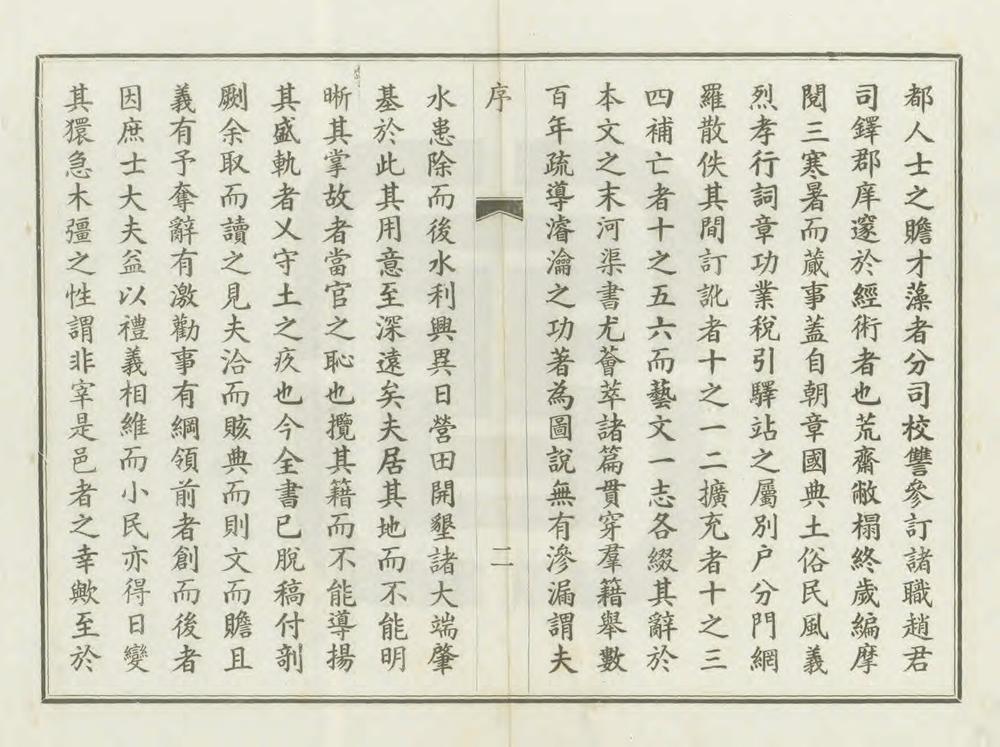 都人士之贍才藻者分司校讐參訂諸職趙君
司鐸郡庠邃於經術者也荒齋敝榻終歲編摩
閱三寒暑而蕆事蓋自朝章國典土俗民風義
烈孝行詞章功業稅引驛站之屬別户分門網
羅散佚其間訂訛者十之一二擴充者十之三
四補亡者十之五六而藝文一志各綴其辭於
本文之末河渠書尤薈萃諸篇貫穿羣籍舉數
百年疏導濬瀹之功著為圖說無有滲漏謂夫
序
二
水患除而後水利興異日營田開墾諸大端肇
基於此其用意至深遠矣夫居其地而不能明
晰其掌故者當官之恥也攬其籍而不能導揚
其盛軌者乂守土之疚也今全書已脫稿付剞
劂余取而讀之見夫洽而賅典而則文而贍且
義有予奪辭有激勸事有綱領前者創而後者
因庶士大夫益以禮義相維而小民亦得日變
其獧急木彊之性謂非宰是邑者之幸歟至於